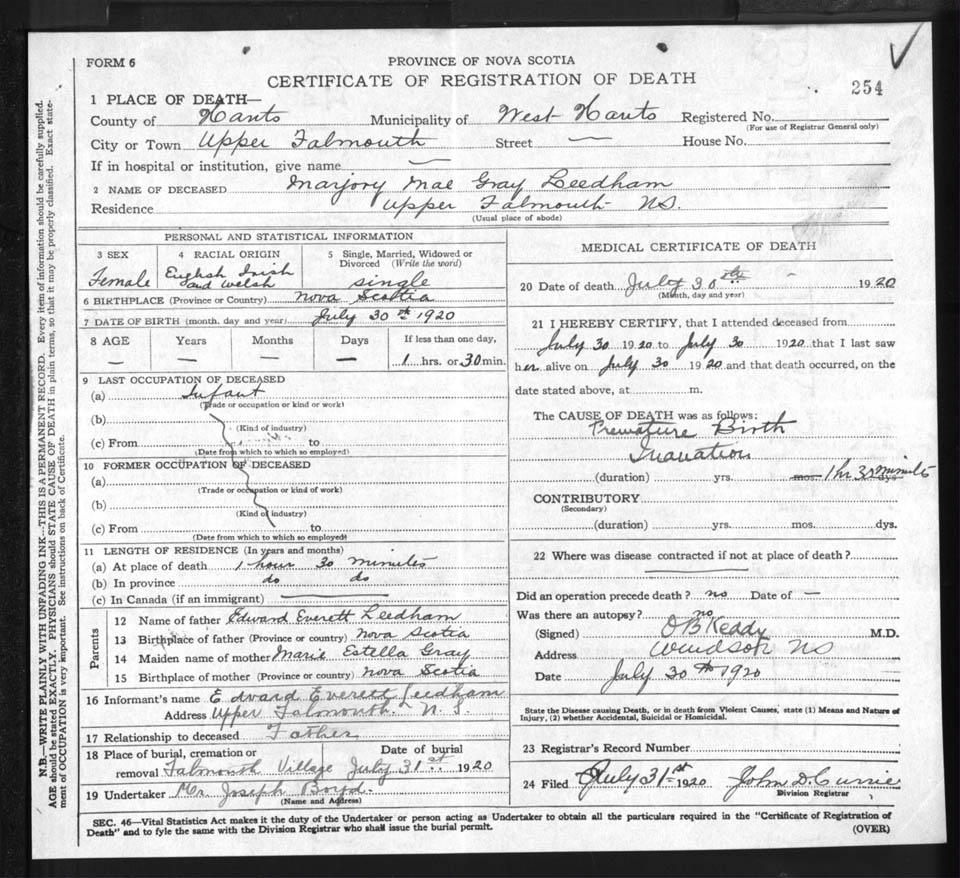 FORM 6
PROVINCE OF NOVA SCOTIA
CERTIFICATE OF REGISTRATION OF DEATH
254
1 PLACE OF DEATH—
County of Hants Municipality of West Hants Registered No.
(For use of Registrar General only)
City or Town Upper Falmouth Street — House No.
If in hospital or institution, give name —
2 NAME OF DECEASED Marjory Mae Gray Leedham
Residence Upper Falmouth NS.
(Usual place of abode)
PERSONAL AND STATISTICAL INFORMATION
3 SEX
Female
4 RACIAL ORIGIN
English Irish
and Welsh
5 Single, Married, Widowed or
Divorced (Write the word)
single
6 BIRTHPLACE (Province or Country) Nova Scotia
7 DATE OF BIRTH (month, day and year) July 30th 1920
8 AGE Years Months Days If less than one day,
— — — 1 hrs. or 30 min.
9 LAST OCCUPATION OF DECEASED
(a) Infant
(Trade or occupation or kind or work)
(b)
(Kind of industry)
(c) From to
(Date from which to which so employed)
10 FORMER OCCUPATION OF DECEASED
(a)
(Trade or occupation or kind of work)
(b)
(Kind of industry)
(c) From to
(Date from which to which so employed)
11 LENGTH OF RESIDENCE (In years and months)
(a) At place of death 1 hour 30 minutes
(b) In province do do
(c) In Canada (if an immigrant)
Parents
12 Name of father Edward Everett Leedham
13 Birthplace of father (Province or country) Nova Scotia
14 Maiden name of mother Marie Estella Gray
15 Birthplace of mother (Province or country) Nova Scotia
16 Informant's name Edward Everett Leedham
Address Upper Falmouth. N.S.
17 Relationship to deceased Father
18 Place of burial, cremation or Date of burial
removal Falmouth Village July 31st 1920
19 Undertaker Mr. Joseph Boyd.
(Name and Address)
MEDICAL CERTIFICATE OF DEATH
20 Date of death July 30 1920
(Month, day and year)
21 I HEREBY CERTIFY, that I attended deceased from
July 30 1920 to July 30 1920 that I last saw
her alive on July 30 1920 and that death occurred, on the
date stated above, at m.
The CAUSE OF DEATH was as follows:
Premature Birth
Inanation
(duration) yrs. mos. 1 hr 30 minutes dys
CONTRIBUTORY
(Secondary)
(duration) yrs. mos. dys.
22 Where was disease contracted if not at place of death?
Did an operation precede death? no Date of —
Was there an autopsy? no
(Signed) O B Keddy M.D.
Address Windsor NS
Date July 30th 1920
State the Disease causing Death, or in death from Violent Causes, state (1) Means and Nature of
Injury, (2) whether Accidental, Suicidal or Homicidal.
23 Registrar's Record Number
24 Filed July 31st 1920 John D. Currie
Division Registrar
SEC. 46—Vital Statistics Act makes it the duty of the Undertaker or person acting as Undertaker to obtain all the particulars required in the "Certificate of Registration of
Death" and to fyle the same with the Division Registrar who shall issue the burial permit.
(OVER)
N.B.—WRITE PLAINLY WITH UNFADING INK—THIS IS A PERMANENT RECORD. Every item of information should be carefully supplied.
AGE should be stated EXACTLY. PHYSICIANS should STATE CAUSE OF DEATH in plain terms, so that it may be properly classified. Exact state-
ment of OCCUPATION is very important. See instructions on back of Certificate.